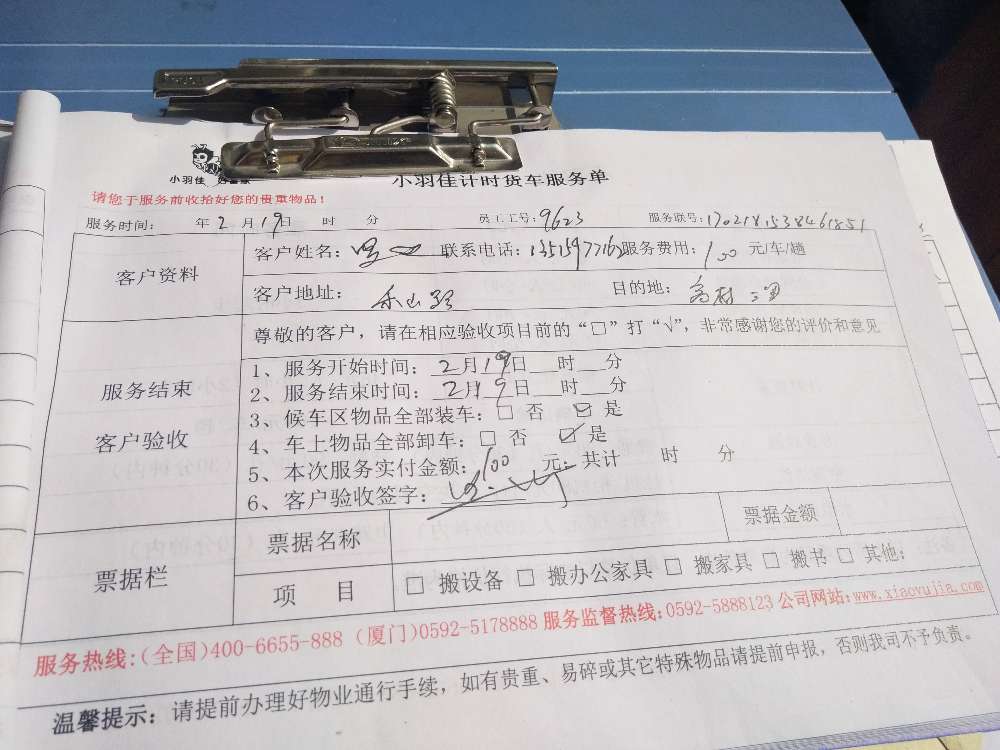 小羽佳
小羽佳计时货车服务单
请您于服务前收拾好您的贵重物品！
服务时间： 年2月19日 时 分 员工工号：9623 服务联号：1702181538461851
客户资料
客户姓名： 联系电话： 服务费用：100元/车/趟
客户地址：禾山路 目的地：高林
尊敬的客户，请在相应验收项目前的“□”打“√”，非常感谢您的评价和意见
服务结束
客户验收
1、服务开始时间：2月19日__时__分
2、服务结束时间：2月19日__时__分
3、候车区物品全部装车：□ 否 ☑ 是
4、车上物品全部卸车：□ 否 ☑ 是
5、本次服务实付金额：100 元；共计 时 分
6、客户验收签字：
票据栏
票据名称 票据金额
项 目 □ 搬设备 □ 搬办公家具 □ 搬家具 □ 搬书 □ 其他：
服务热线：(全国)400-6655-888 (厦门)0592-5178888 服务监督热线：0592-5888123 公司网站：www.xiaoyujia.com
温馨提示：请提前办理好物业通行手续，如有贵重、易碎或其它特殊物品请提前申报，否则我司不予负责。